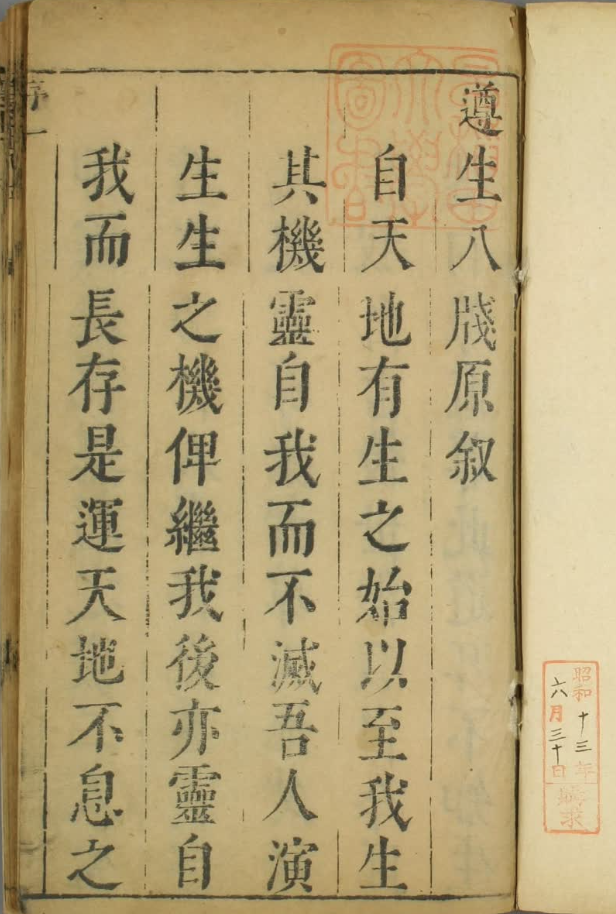 遵生八牋原叙
自天地有生之始以至我生
其機靈自我而不滅吾人演
生生之機俾繼我後亦靈自
我而長存是運天地不息之
序一
昭和十三年
六月三十日